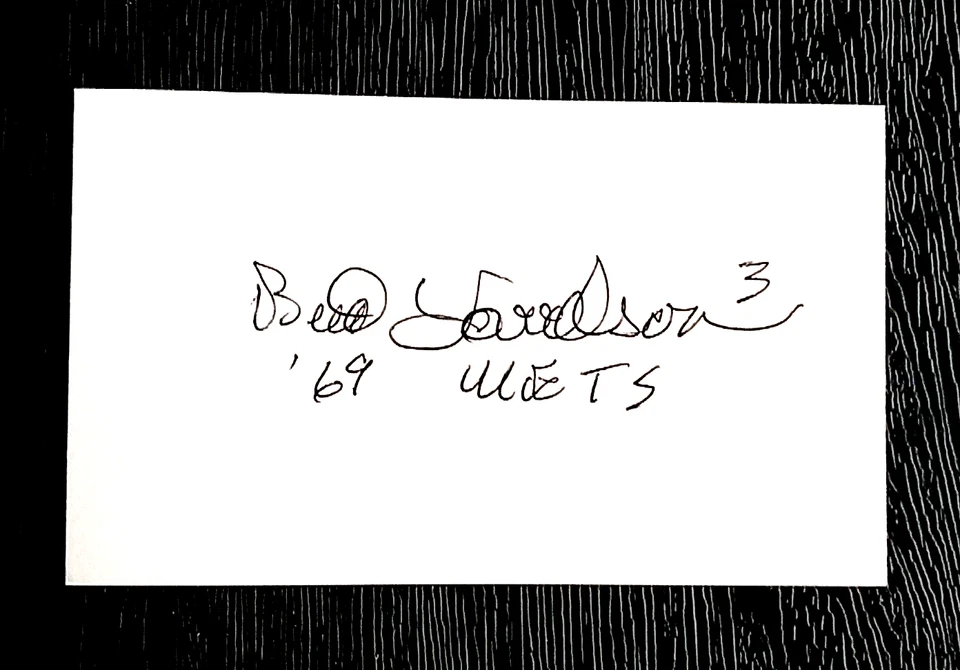 Bud Harrelson 3
'69 METS